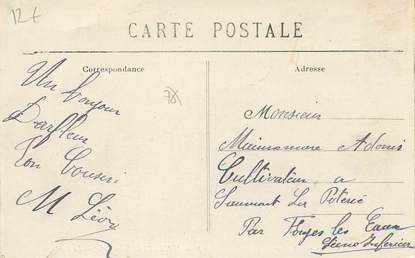 12 €
CARTE POSTALE
Correspondance
Adresse
Un bonjour
Ton Cousin
M
Monsieur
Adonis
Cultivateur a
Saumont La Poterie
Par Forges les Eaux
Seine Inferieure